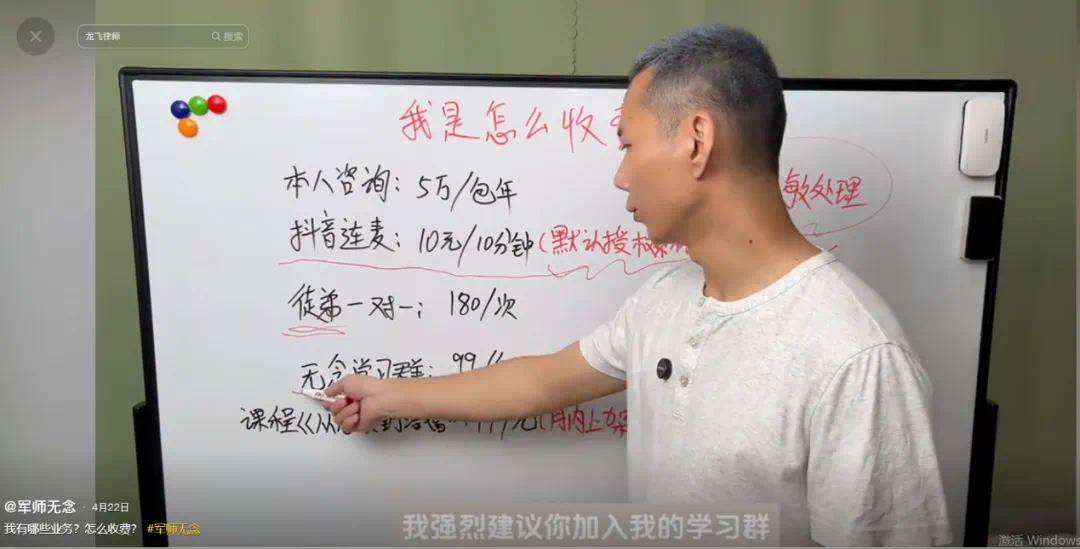 龙飞律师
搜索
我是怎么收
本人咨询：5万/包年
敏处理
抖音连麦：10元/10分钟（默认授权
徒弟一对一：180/次
无念学习群：99
课程《从
元（月内上架
@军师无念 · 4月22日
我有哪些业务？怎么收费？ #军师无念
我强烈建议你加入我的学习群
激活 Windows